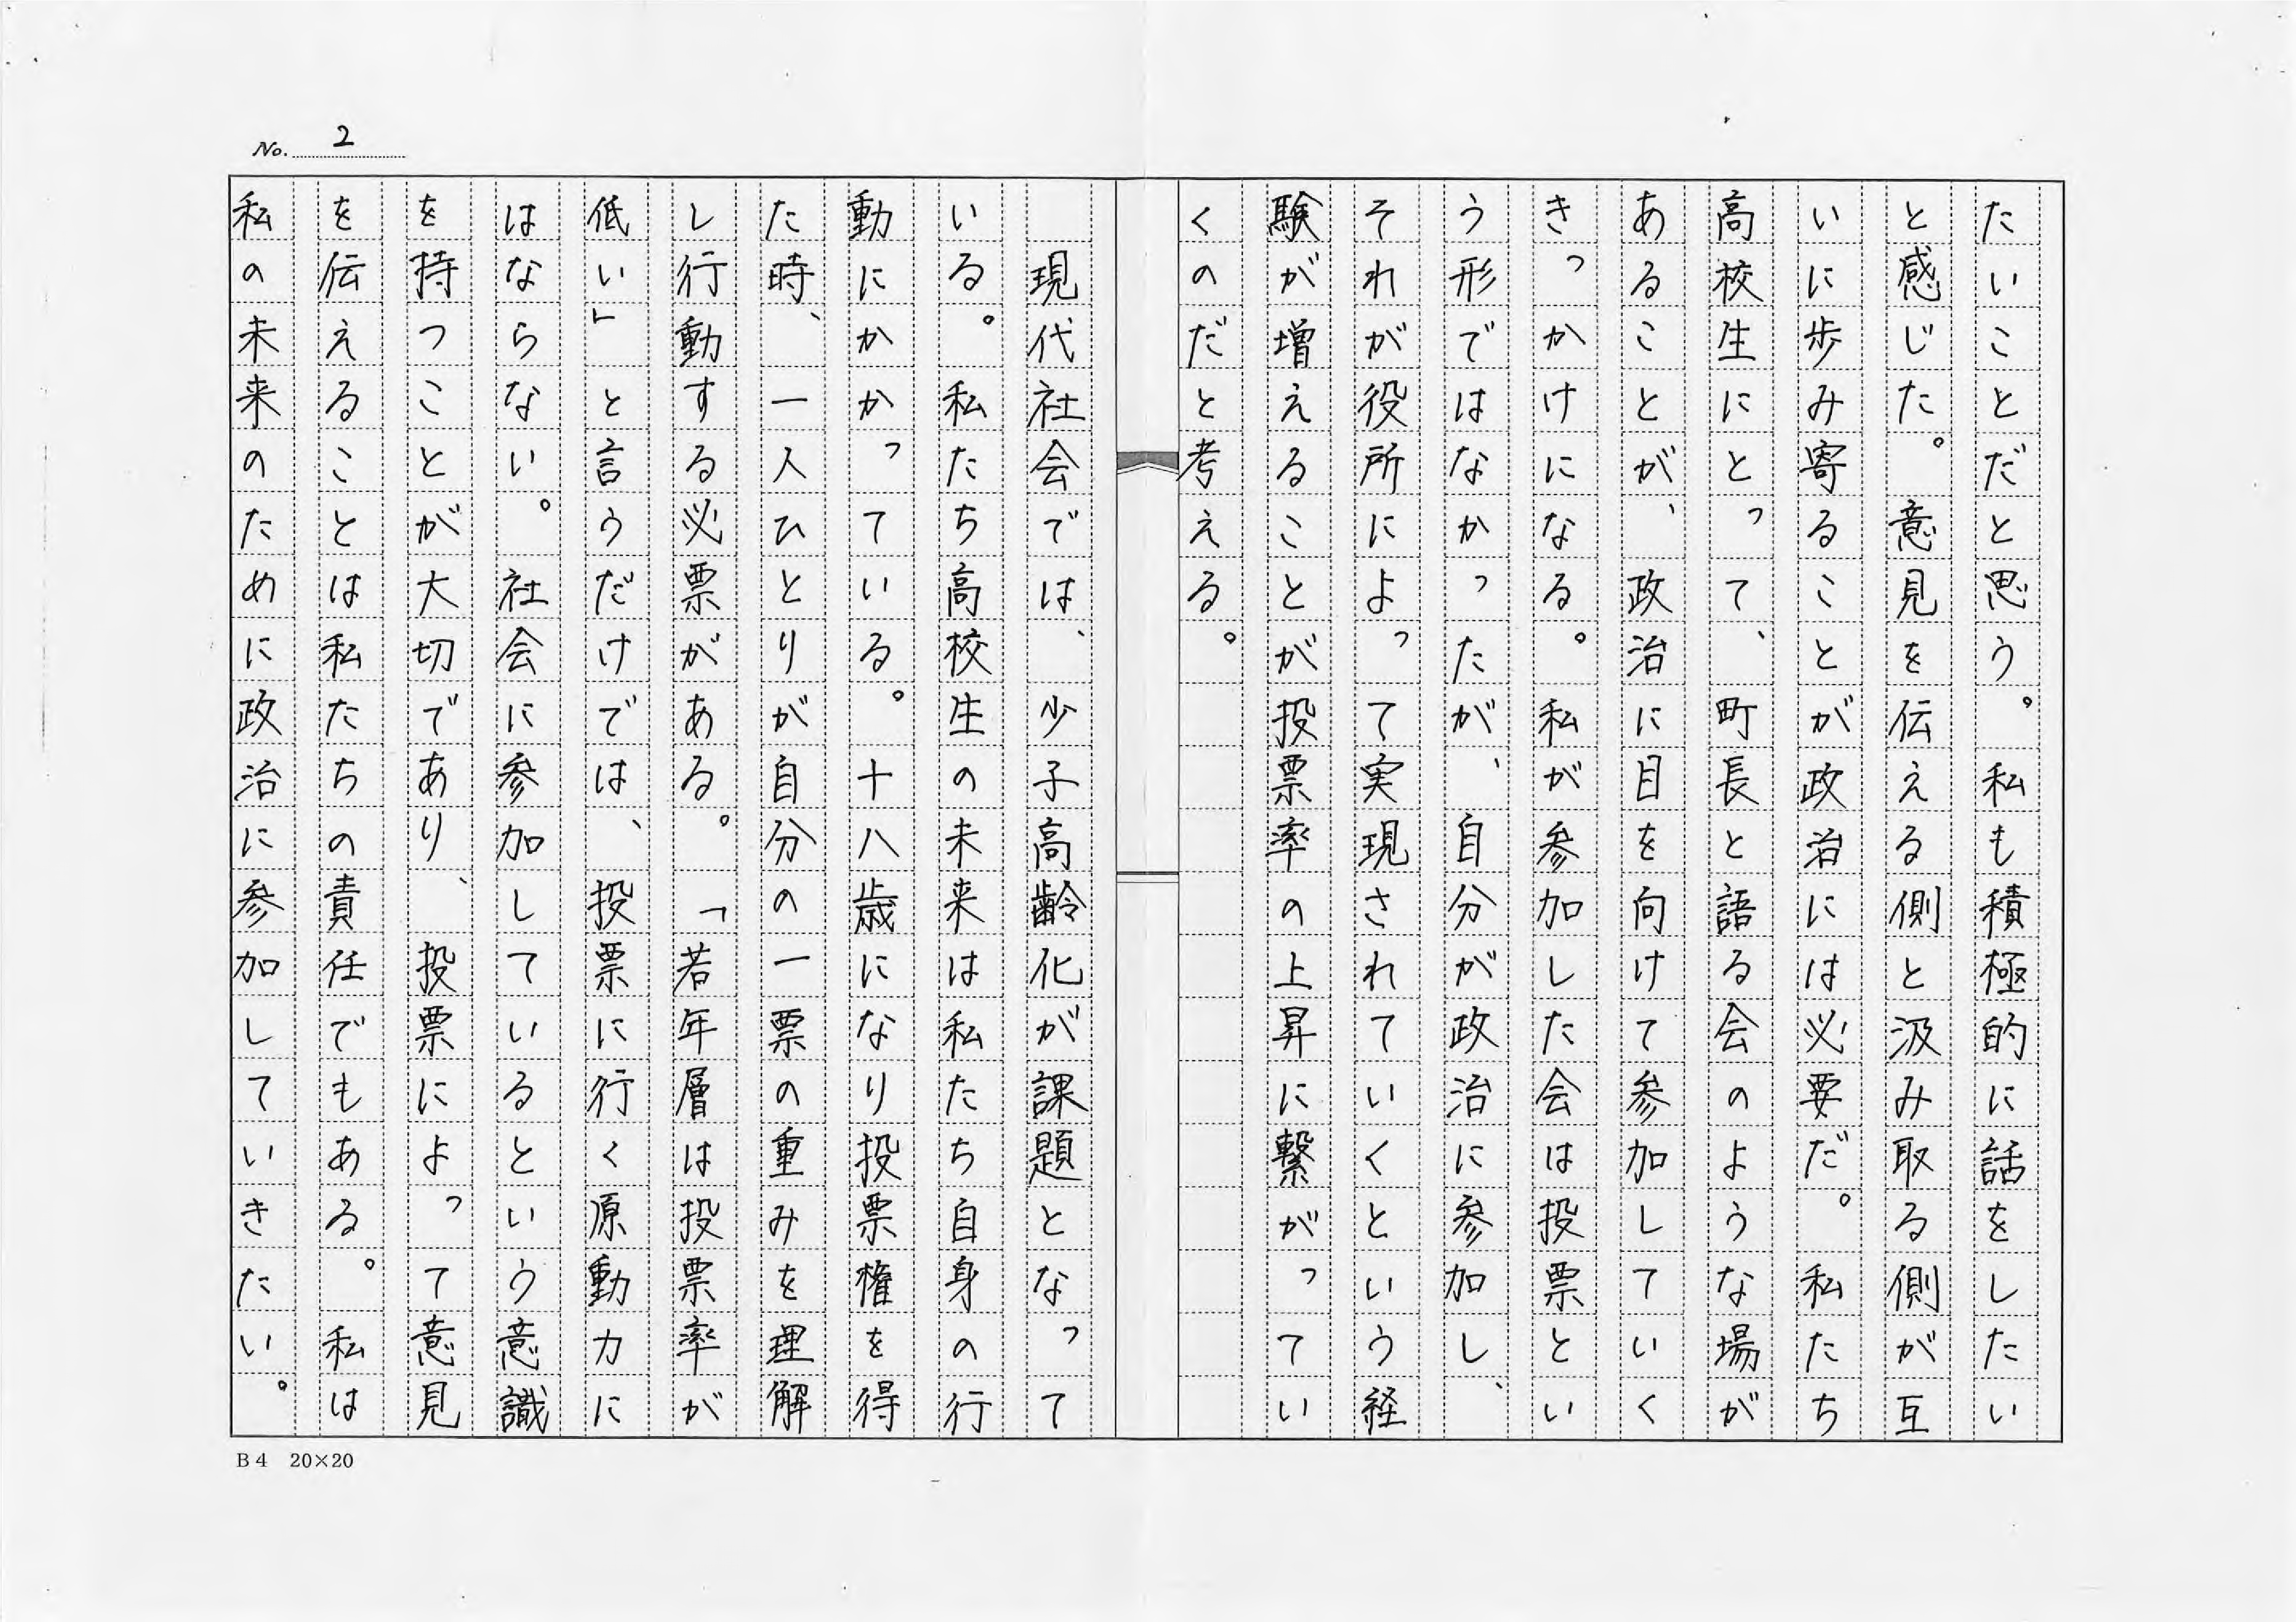 No. 2
たいことだと思う。私も積極的に話をしたい
と感じた。意見を伝える側と汲み取る側が互
いに歩み寄ることが政治には必要だ。私たち
高校生にとって、町長と語る会のような場が
あることが、政治に目を向けて参加していく
きっかけになる。私が参加した会は投票とい
う形ではなかったが、自分が政治に参加し、
それが役所によって実現されていくという経
験が増えることが投票率の上昇に繋がってい
くのだと考える。
現代社会では、少子高齢化が課題となって
いる。私たち高校生の未来は私たち自身の行
動にかかっている。十八歳になり投票権を得
た時、一人ひとりが自分の一票の重みを理解
し行動する必票がある。「若年層は投票率が
低い」と言うだけでは、投票に行く原動力に
はならない。社会に参加しているという意識
を持つことが大切であり、投票によって意見
を伝えることは私たちの責任でもある。私は
私の未来のために政治に参加していきたい。
B4 20×20